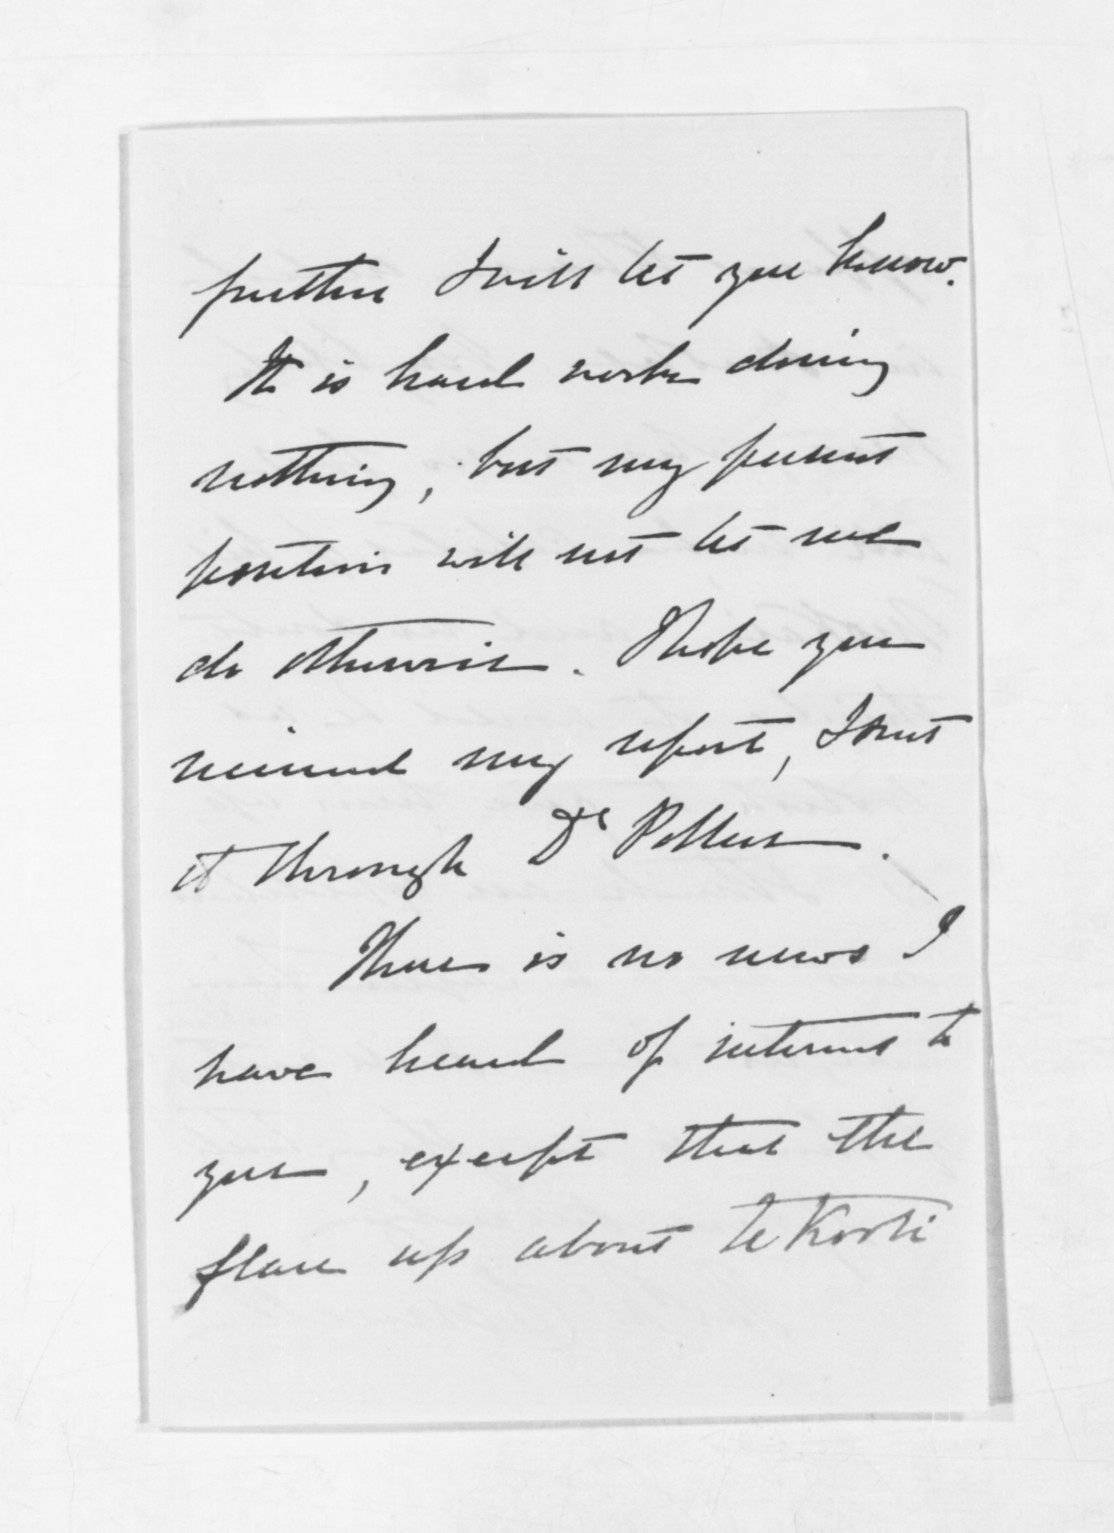 further I will let you know.
It is hard work doing
nothing, but my present
position will not let me
do otherwise. I hope you
received my report, I sent
it through Dr Pollen.
There is no news I
have heard of interest to
you, except that the
flare up about Te Kooti